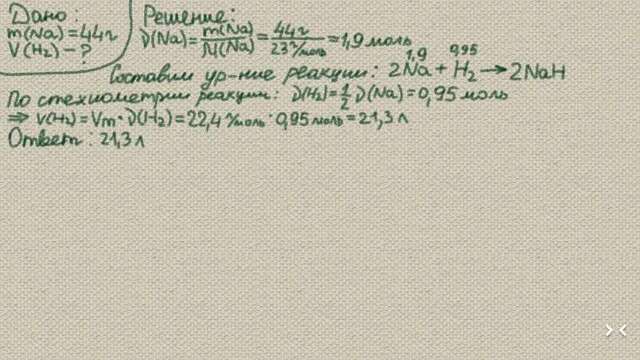 Дано:
m(Na)=44г
V(H₂)-?
Решение:
ν(Na)=m(Na)/M(Na)=44г/23г/моль=1,9 моль
Составим ур-ние реакции: 2Na+H₂→2NaH
1,9 0,95
По стехиометрии реакции: ν(H₂)=1/2 ν(Na)=0,95 моль
⇒ V(H₂)=Vm·ν(H₂)=22,4 л/моль·0,95 моль=21,3 л
Ответ: 21,3 л